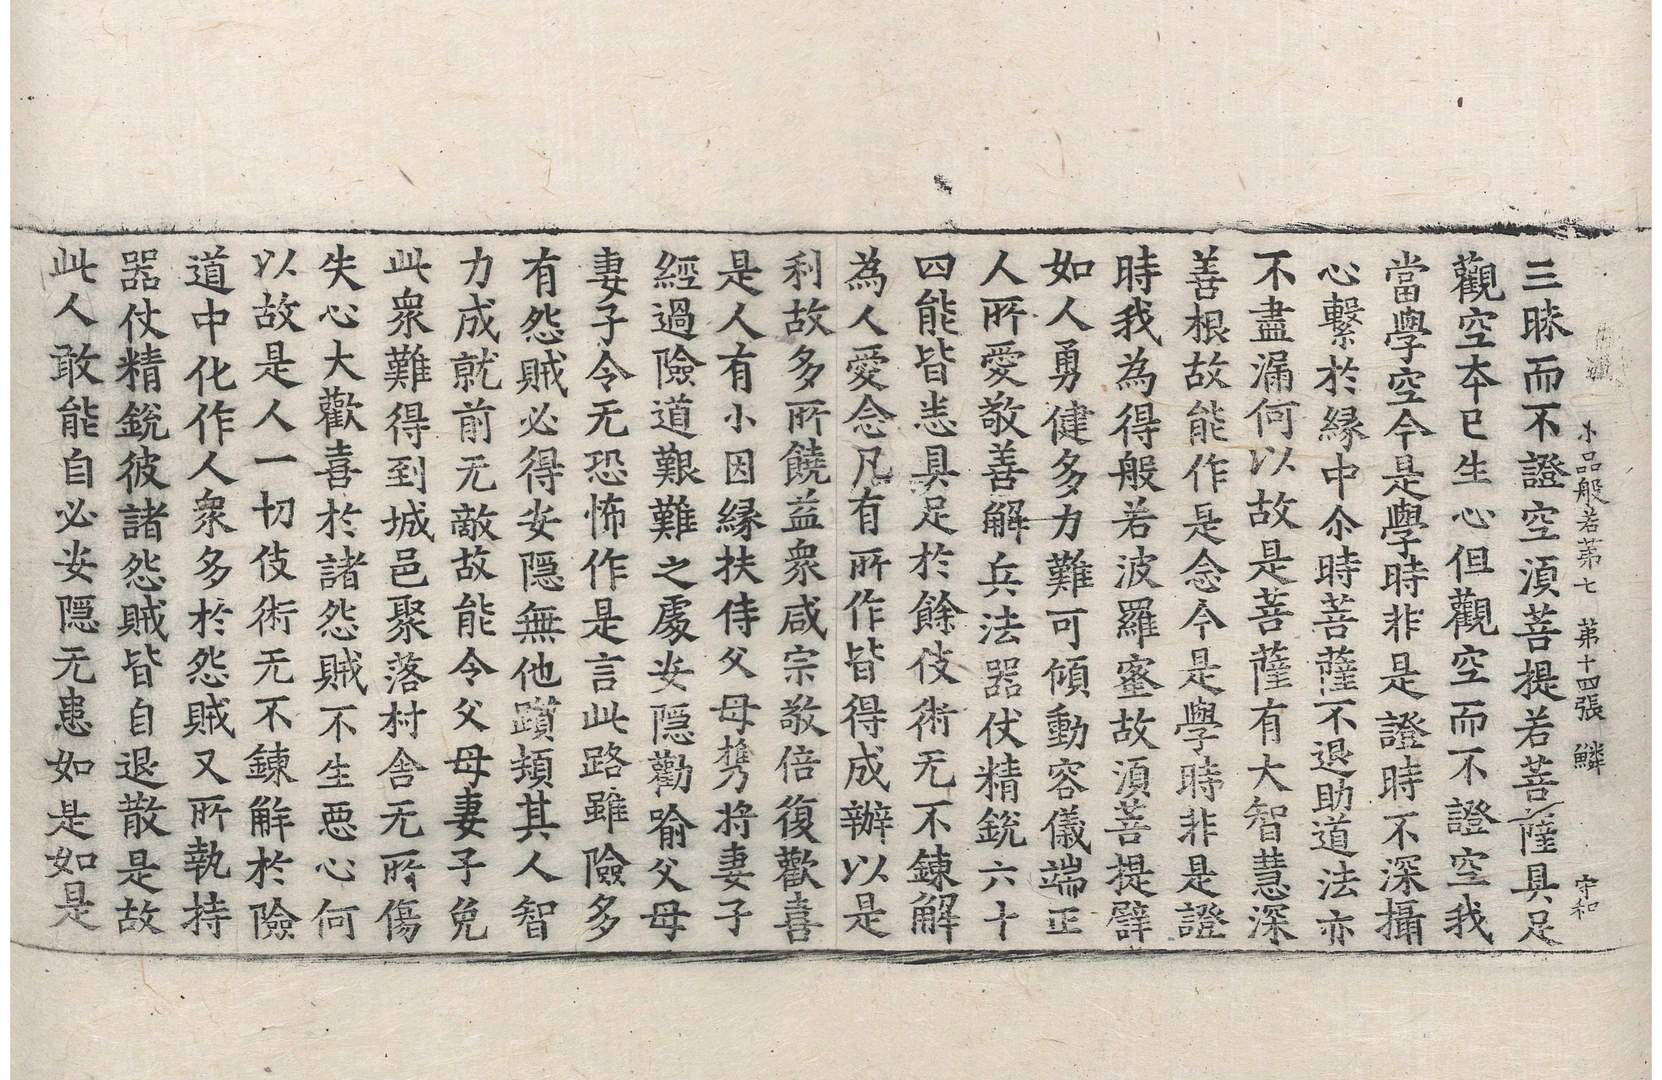 小品般若苐七 苐十四張 鱗 守和
三昧而不證空湏菩提若菩薩具足
觀空夲已生心但觀空而不證空我
當學空今是學時非是證時不深攝
心繫於縁中尒時菩薩不退助道法亦
不盡漏何以故是菩薩有大智慧深
善根故能作是念今是學時非是證
時我為得般若波羅蜜故湏菩提譬
如人勇健多力難可傾動容儀端正
人所愛敬善解兵法器仗精銳六十
四能皆悉具足於餘伎術无不鍊解
為人愛念凡有所作皆得成辦以是
利故多所饒益衆咸宗敬倍復歡喜
是人有小因縁扶侍父母㩦將妻子
經過險道艱難之處安隱勸喻父母
妻子令无恐怖作是言此路雖險多
有怨賊必得安隱無他躓頓其人智
力成就前无敵故能令父母妻子免
此衆難得到城邑聚落村舍无所傷
失心大歡喜於諸怨賊不生惡心何
以故是人一切伎術无不鍊解於險
道中化作人衆多於怨賊又所執持
器仗精銳彼諸怨賊皆自退散是故
此人敢能自必安隱无患如是如是